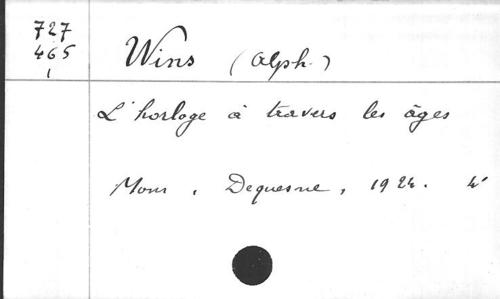 727
465
1
Wins (Alph.)
L'horloge à travers les âges
Mons, Dequesne, 1924. 4°